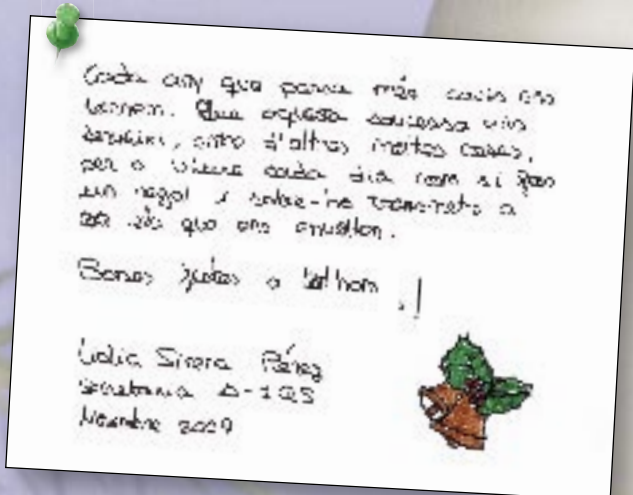 Cada any que passa més savis ens
tornem. Que aquesta saviesa ens
serveixi, entre d'altres moltes coses,
per a viure cada dia com si fos
un regal i sabre-ho transmetre a
que ens envolten.
Bones festes a tothom!
Lidia Sirera Pérez
Secretaria D-1QS
Novembre 2009